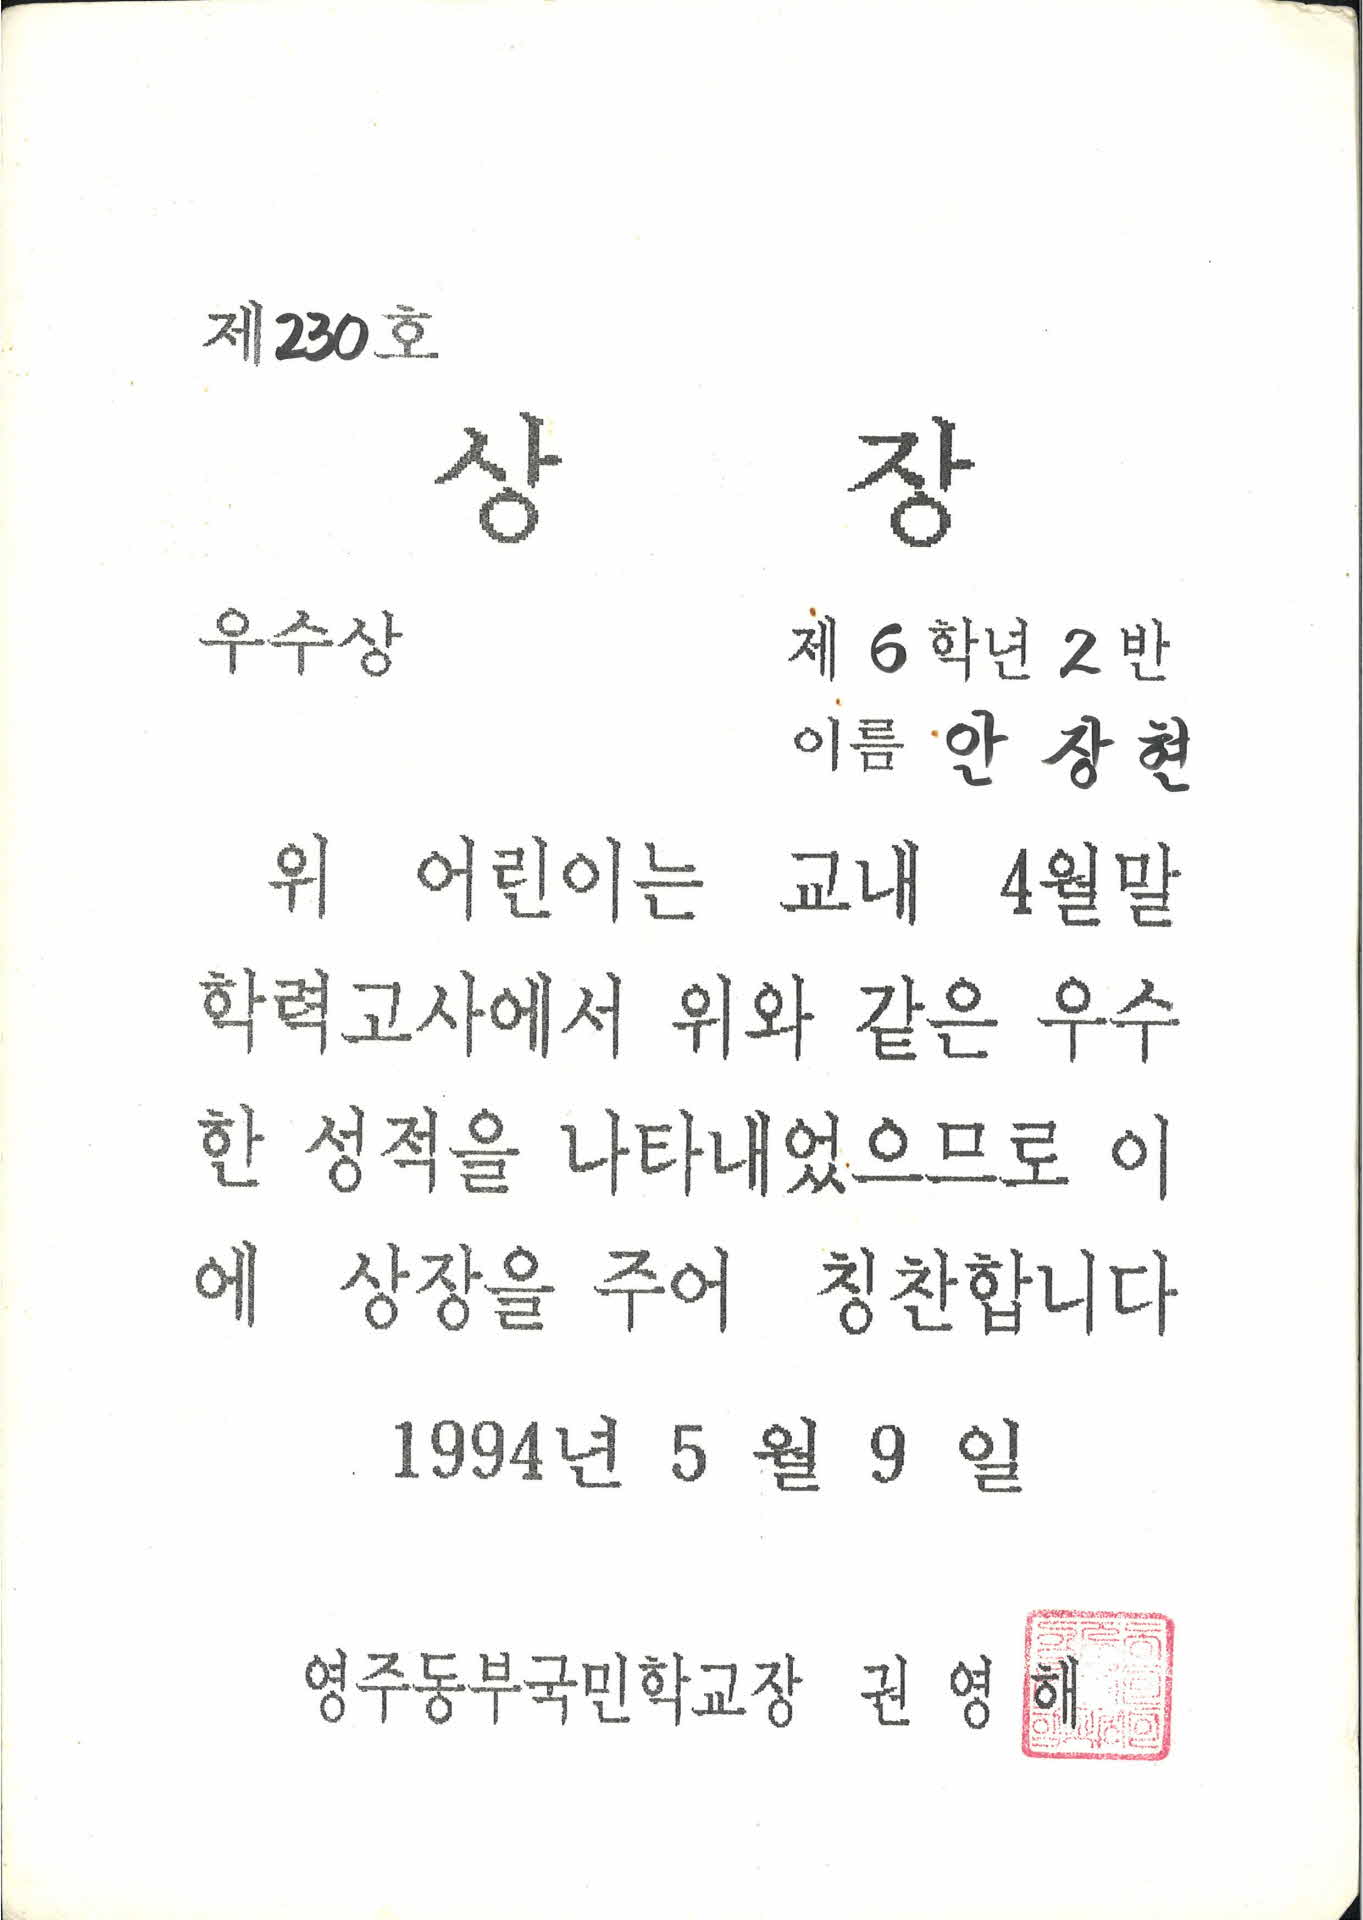 제230호
상 장
우수상
제 6 학년 2 반
이름 안 장 현
위 어린이는 교내 4월말
학력고사에서 위와 같은 우수
한 성적을 나타내었으므로 이
에 상장을 주어 칭찬합니다
1994년 5 월 9 일
영주동부국민학교장 권 영 해